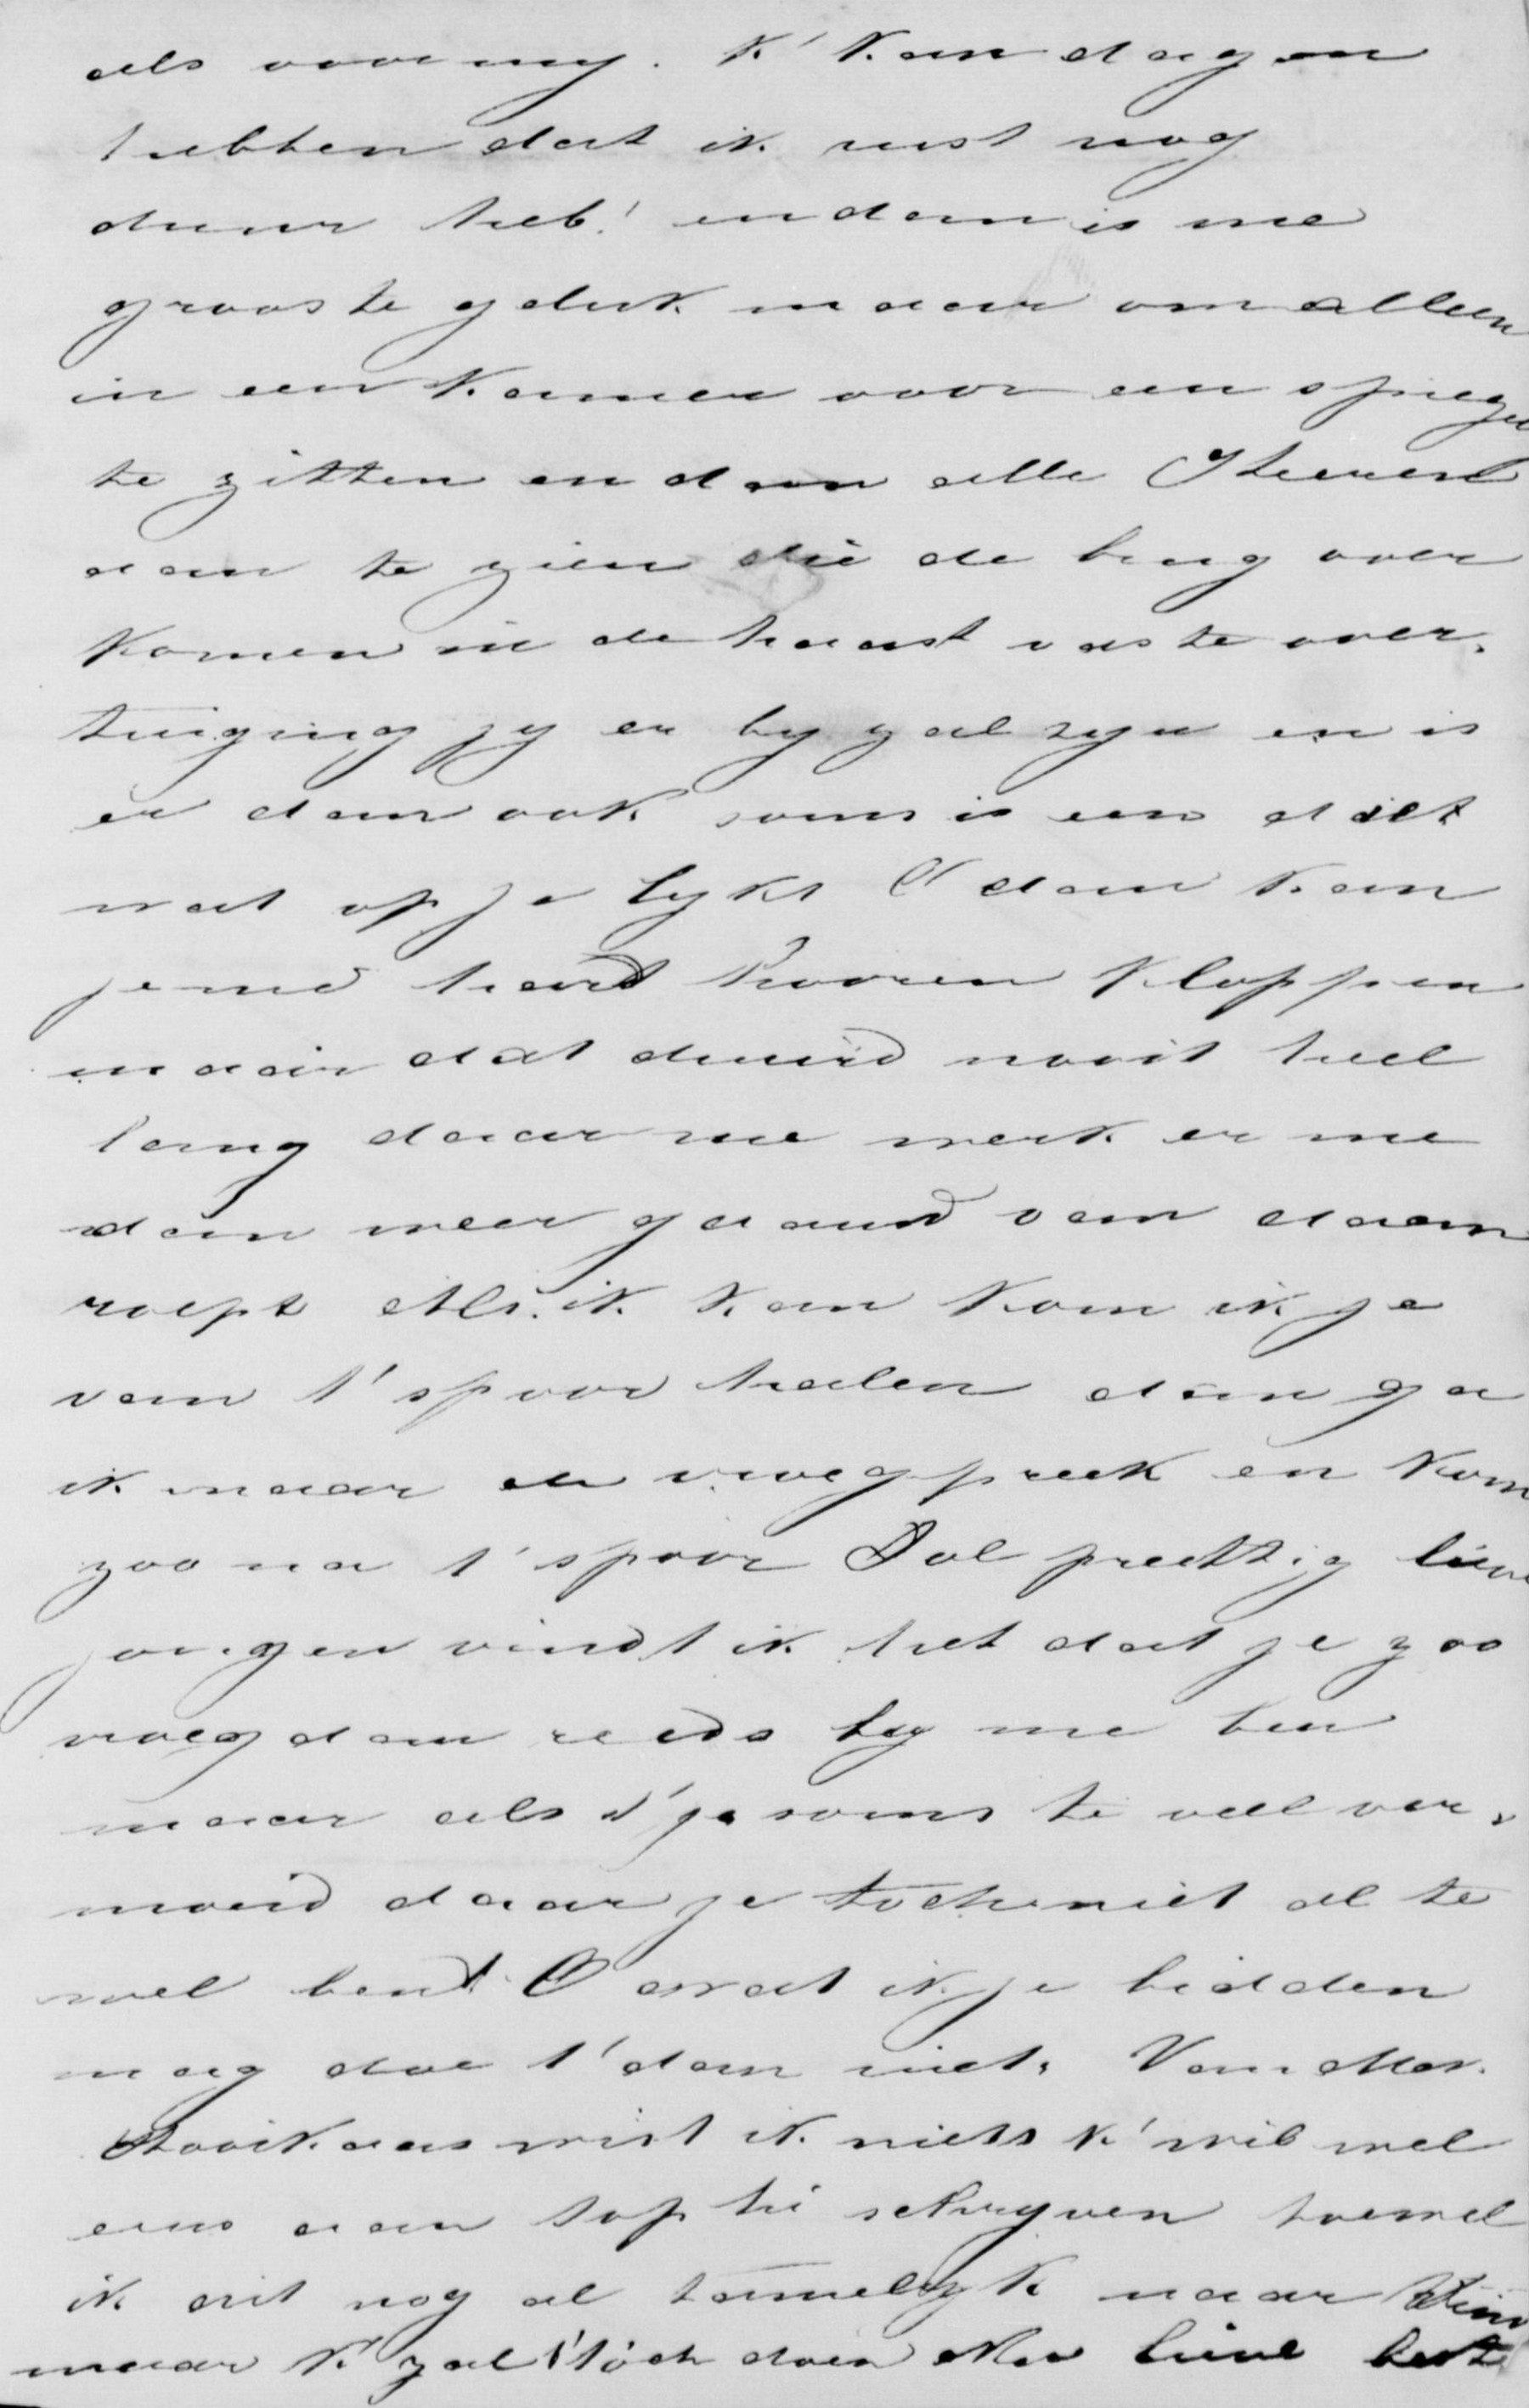 als voor my. K' kan dagen
hebben dat ik rust nog
duur heb! en dan is me
grooste geluk maar om alleen
in een kamer voor een spiegel
te zitten en dan alle Heeren
aan te zien die de brug over
komen in de haast vaste over„
tuiging jy er by zal zyn en is
er dan ook soms is een dat
wat op je lykt O dan kan
je me hard hooren kloppen
maar dat duurd nooit heel
lang daar me werk er me
dan weer gaand van daan
roept Als ik kan kom ik je
van t' spoor halen dan ga
ik maar de vroegpreek en kom
zoo na t' spoor Dol prettig lieve
jongen vindt ik het dat je zoo
vroeg dan reeds by me ben
maar als t' je soms te veel ver„
moeid daar je toch niet al te
wel bent O wat ik je bidden
mag doe t' dan niet. Van Mev.
Rooikaas wist ik niets k' wil wel
eens aan Sophi schryven hoewel
ik er nog al tamelyk naar
maar k' zal t' toch doen Nu lieve beste